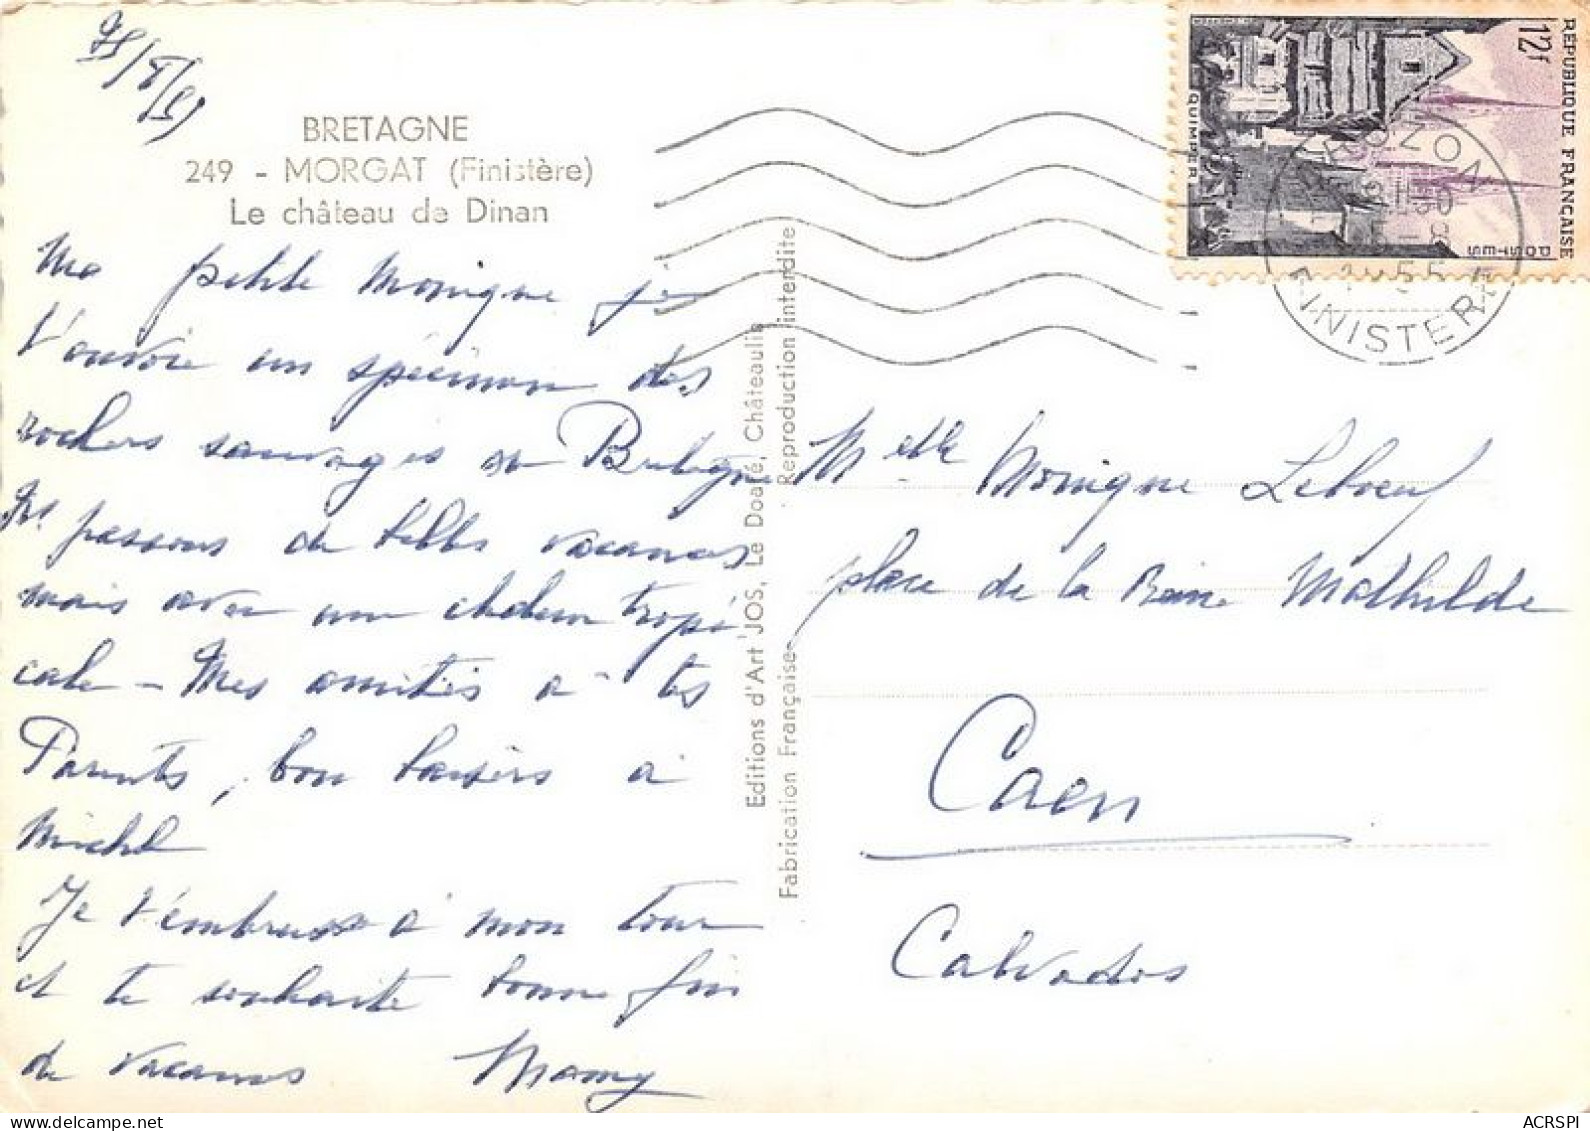 BRETAGNE
249 - MORGAT (Finistère)
Le château de Dinan
Ma petite Monique je
t'envoie un spécimen des
rochers sauvages de Bretagne
Ns passons de belles vacances
mais avec une chaleur tropi
cale - Mes amitiés à tes
Parents, bon baisers à
Michel
Je t'embrasse à mon tour
et te souhaite bonne fin
de vacances Mamy
Editions d'Art "JOS" Le Doaré, Châteaulin
Fabrication Française Reproduction interdite
RÉPUBLIQUE FRANÇAISE
12f
POSTES
QUIMPER
CROZON
FINISTERE
Melle Monique Leboeuf
place de la Reine Mathilde
Caen
Calvados
ACRSPI